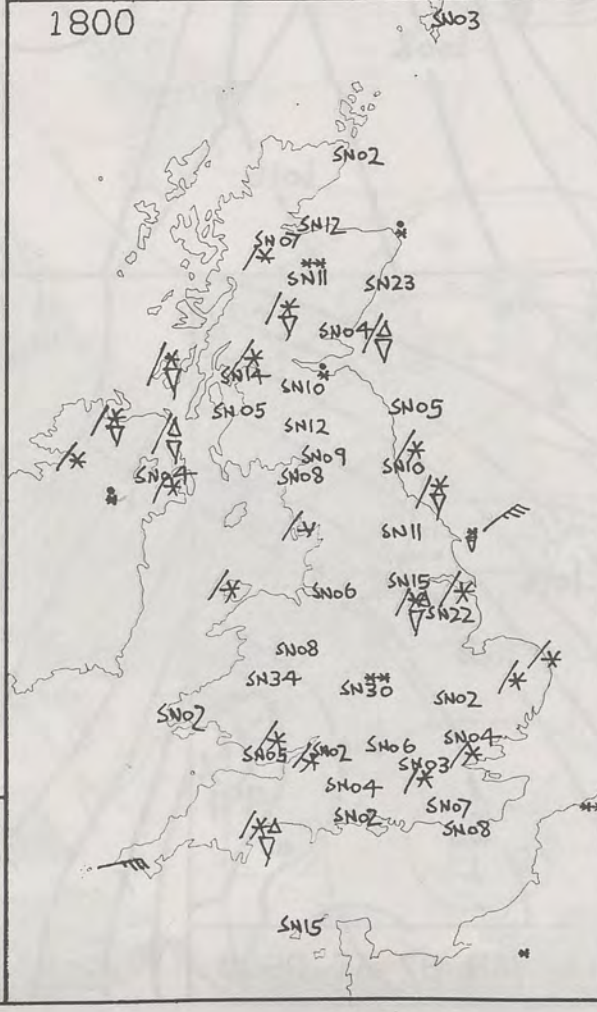 1800
SN03
SN02
SN12
SN07
SN11
SN23
SN04
SN14
SN10
SN05
SN05
SN12
SN09
SN10
SN08
SN04
SN11
SN15
SN06
SN22
SN08
SN34
SN30
SN02
SN02
SN04
SN06
SN05
SN02
SN03
SN04
SN07
SN02
SN08
SN15